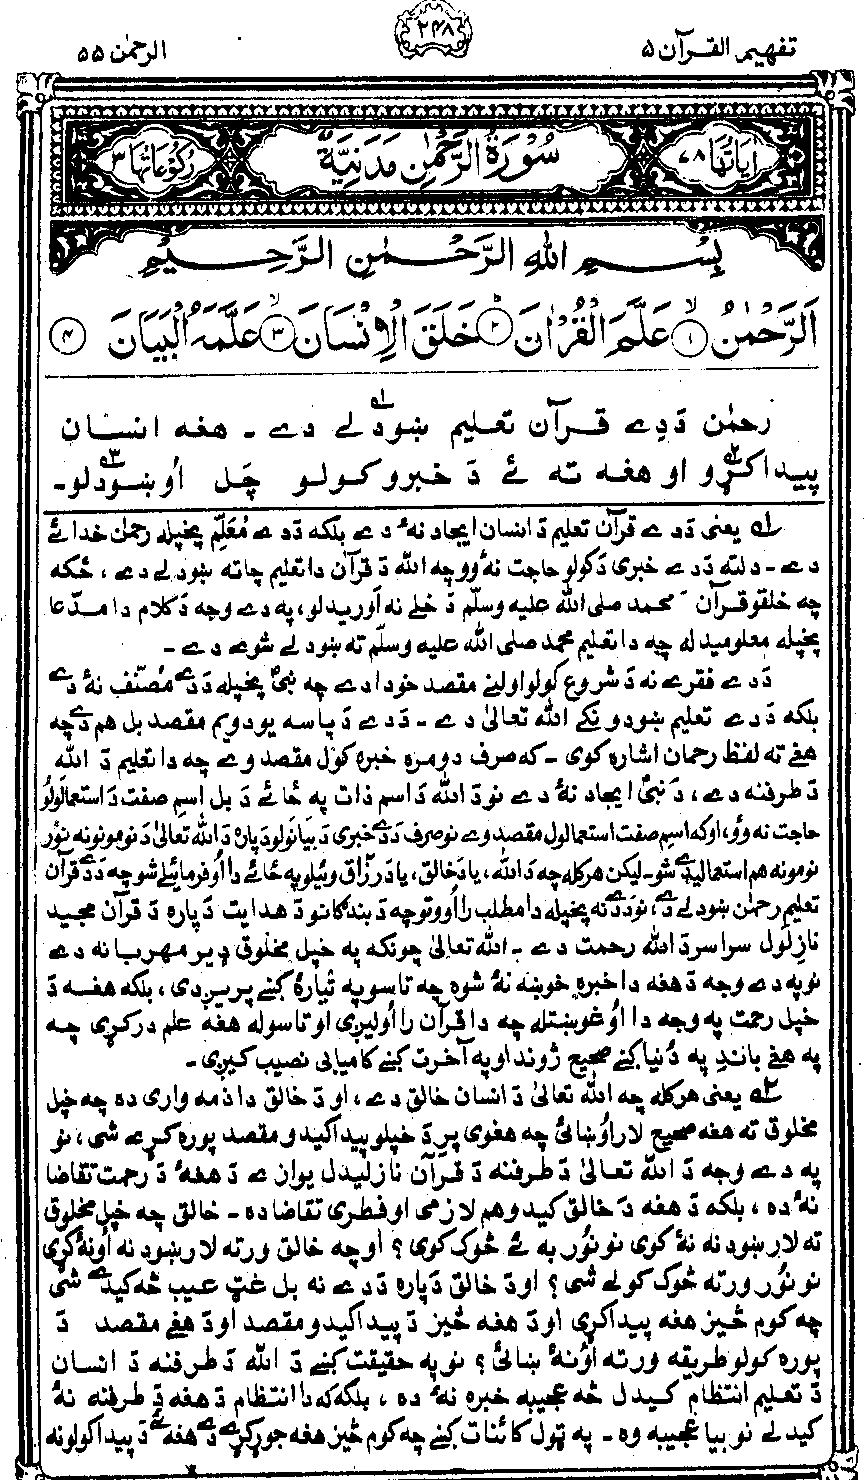 تفهيم القرآن ۵
۲۴۸
الرحمٰن ۵۵
اٰيَاتُهَا ۷۸
سُوْرَةُ الرَّحْمٰنِ مَدَنِيَّةٌ
رُكُوْعَاتُهَا ۳
بِسْمِ اللهِ الرَّحْمٰنِ الرَّحِيْمِ
اَلرَّحْمٰنُ ۙ﴿۱﴾ عَلَّمَ الْقُرْاٰنَ ؕ﴿۲﴾ خَلَقَ الْاِنْسَانَ ۙ﴿۳﴾ عَلَّمَهُ الْبَيَانَ ﴿۴﴾
رحمٰن دَدِے قرآن تعليم ښودلے دے ۔ هغه انسان
پيدا کړو او هغه ته ئے دَ خبرو کولو چَل اُوښودلو۔
لے يعنى دَدے قرآن تعليم دَ انسان ايجاد نۀ دے بلکه دَدے مُعَلِّم پخپله رحمٰن خدائے
دے ۔ دلته دَدے خبرى دَکولو حاجت نۀ وو چه الله دَ قرآن دا تعليم چاته ښودلے دے ، ځکه
چه خلقو قرآن د محمد صلى الله عليه وسلّم دَ خلے نه آوريدلو، په دے وجه دَ کلام دا مدّعا
پخپله معلوميدله چه دا تعليم محمد صلى الله عليه وسلّم ته ښودلے شوے دے ۔
دَدے فقرے نه دَ شروع کولو اولنے مقصد خودا دے چه نبىؐ پخپله دَدے مُصنّف نۀ دے
بلکه دَدے تعليم ښودونکے الله تعالىٰ دے ۔ دَدے دَپاسه يو دويم مقصد بل هم دے چه
هغے ته لفظ رحمان اشاره کوى ۔ که صرف دومره خبره کول مقصد وے چه دا تعليم دَ الله
دَ طرفنه دے ، دَ نبىؐ ايجاد نۀ دے نو دَ الله دَ اسم ذات په ځائے دَ بل اسمِ صفت دَ استعمالولُو
حاجت نه وؤ، او که اسمِ صفت استعمالول مقصد وے نو صرف دَدے خبرى دَ بيانولو دپاره دَ الله تعالىٰ دَ نومونو نه نوُر
نومونه هم استعماليدے شو۔ ليکن هرکله چه دَ الله، يا دَ خالق، يا دَ رزّاق وئيلو په ځائے دا اُو فرمائيلے شو چه دَدے قرآن
تعليم رحمٰن ښودلے دے، نو دَدے نه پخپله دا مطلب را اُووتو چه دَ بندګانو دَ هدايت دَپاره دَ قرآن مجيد
نازلول سراسر دَ الله رحمت دے ۔ الله تعالىٰ چونکه په خپل مخلوق ډير مهربانه دے
نو په دے وجه دَ هغه دا خبره خوښه نۀ شوه چه تاسو په تيارۀ کښے پريږدى ، بلکه هغه دَ
خپل رحمت په وجه دا اُوغوښتله چه دا قرآن را اُوليږى او تاسو له هغه علم درکړى چه
په هغے باندِ په دُنيا کښے صحيح ژوند او په آخرت کښے کاميابى نصيب کيږى۔
ځے يعنى هرکله چه الله تعالىٰ دَ انسان خالق دے ، او دَ خالق دا ذمه وارى ده چه خپل
مخلوق ته هغه صحيح لار اُوښائى چه هغوى پرِ دَ خپلو پيدا کيدو مقصد پوره کړے شى ، نو
په دے وجه دَ الله تعالىٰ دَ طرفنه دَ قرآن نازليدل يوازے دَ هغۀ دَ رحمت تقاضا
نۀ ده ، بلکه دَ هغه دَ خالق کيدو هم لازمى او فطرى تقاضا ده ۔ خالق چه خپل مخلوق
ته لار ښودنه نۀ کوى نو نوُر به ئے څوک کوى ؟ او چه خالق ورته لار ښودنه اُونۀ کړى
نو نوُر ورته څوک کولے شى ؟ او دَ خالق دَپاره دَدے نه بل غټ عيب څه کيدے شى
چه کوم څيز هغه پيدا کړى او دَ هغه څيز دَ پيدا کيدو مقصد او دَ هغے مقصد دَ
پوره کولو طريقه ورته اُونۀ ښائى ؟ نو په حقيقت کښے دَ الله دَ طرفنه دَ انسان
دَ تعليم انتظام کيدل څه عجيبه خبره نۀ ده ، بلکه که دا انتظام دَ هغه دَ طرفنه نۀ
کيدلے نو بيا عجيبه وه ۔ په ټول کائنات کښے چه کوم څيز هغه جوړ کړے دے هغه ئے دَ پيدا کولو نه